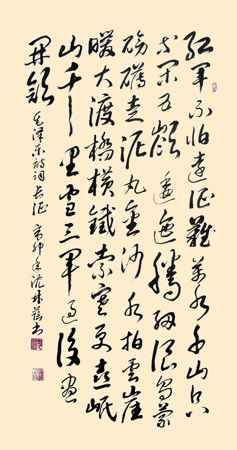 红軍不怕遠征難萬水千山只
等闲五嶺逶迤腾细浪乌蒙
磅礴走泥丸金沙水拍雲崖
暖大渡橋横鐵索寒更喜岷
山千里雪三軍过後尽
开颜
毛泽东诗词长征
辛卯年沈林书